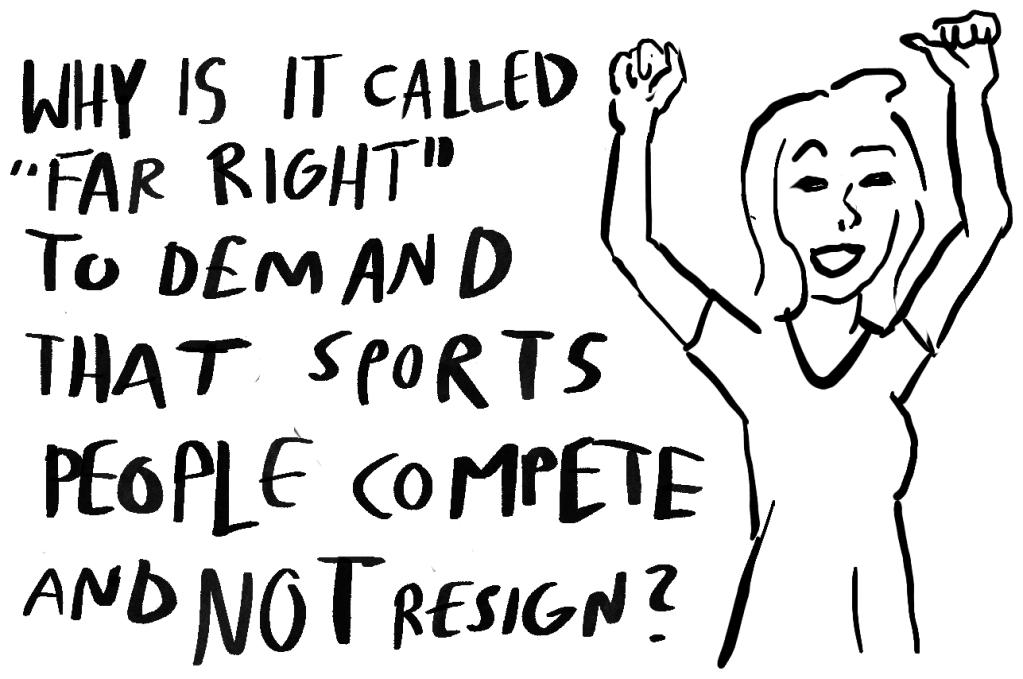 WHY IS IT CALLED
"FAR RIGHT"
TO DEMAND
THAT SPORTS
PEOPLE COMPETE
AND NOT RESIGN?